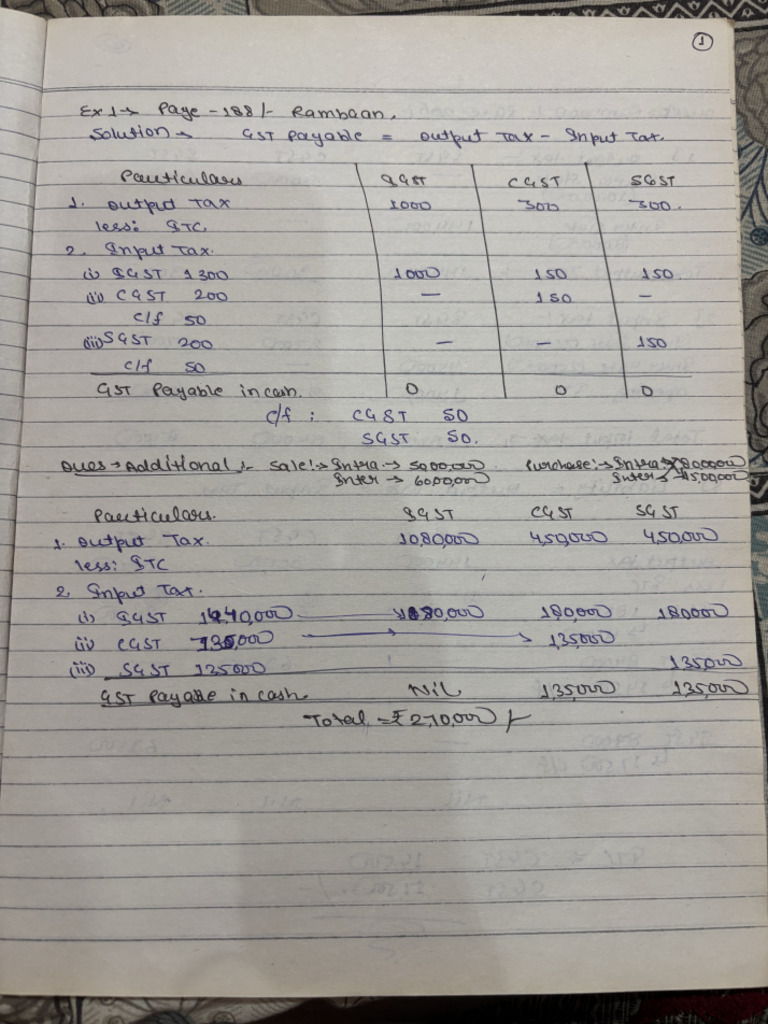 1
Ex 1 → Page - 188/- Rambaan.
Solution → GST Payable = Output Tax - Input Tax.
Particulars IGST CGST SGST
1. Output Tax 1000 300 300.
less: ITC.
2. Input Tax.
(i) IGST 1300 1000 150 150.
(ii) CGST 200 — 150 —
c/f 50
(iii) SGST 200 — — 150
c/f 50
GST Payable in cash. 0 0 0
c/f : CGST 50
SGST 50.
Ques → Additional :- Sale: → Intra → 5000,000 Purchase: → Intra →
Inter → 6000,000 Inter →
Particulars. IGST CGST SGST
1. Output Tax. 1080,000 450,000 450,000
less: ITC
2. Input Tax.
(i) IGST 1440,000 1080,000 180,000 180000
(ii) CGST 135000 → 135000
(iii) SGST 135000 135000
GST Payable in cash. Nil 135,000 135,000
Total = ₹ 270,000 /-